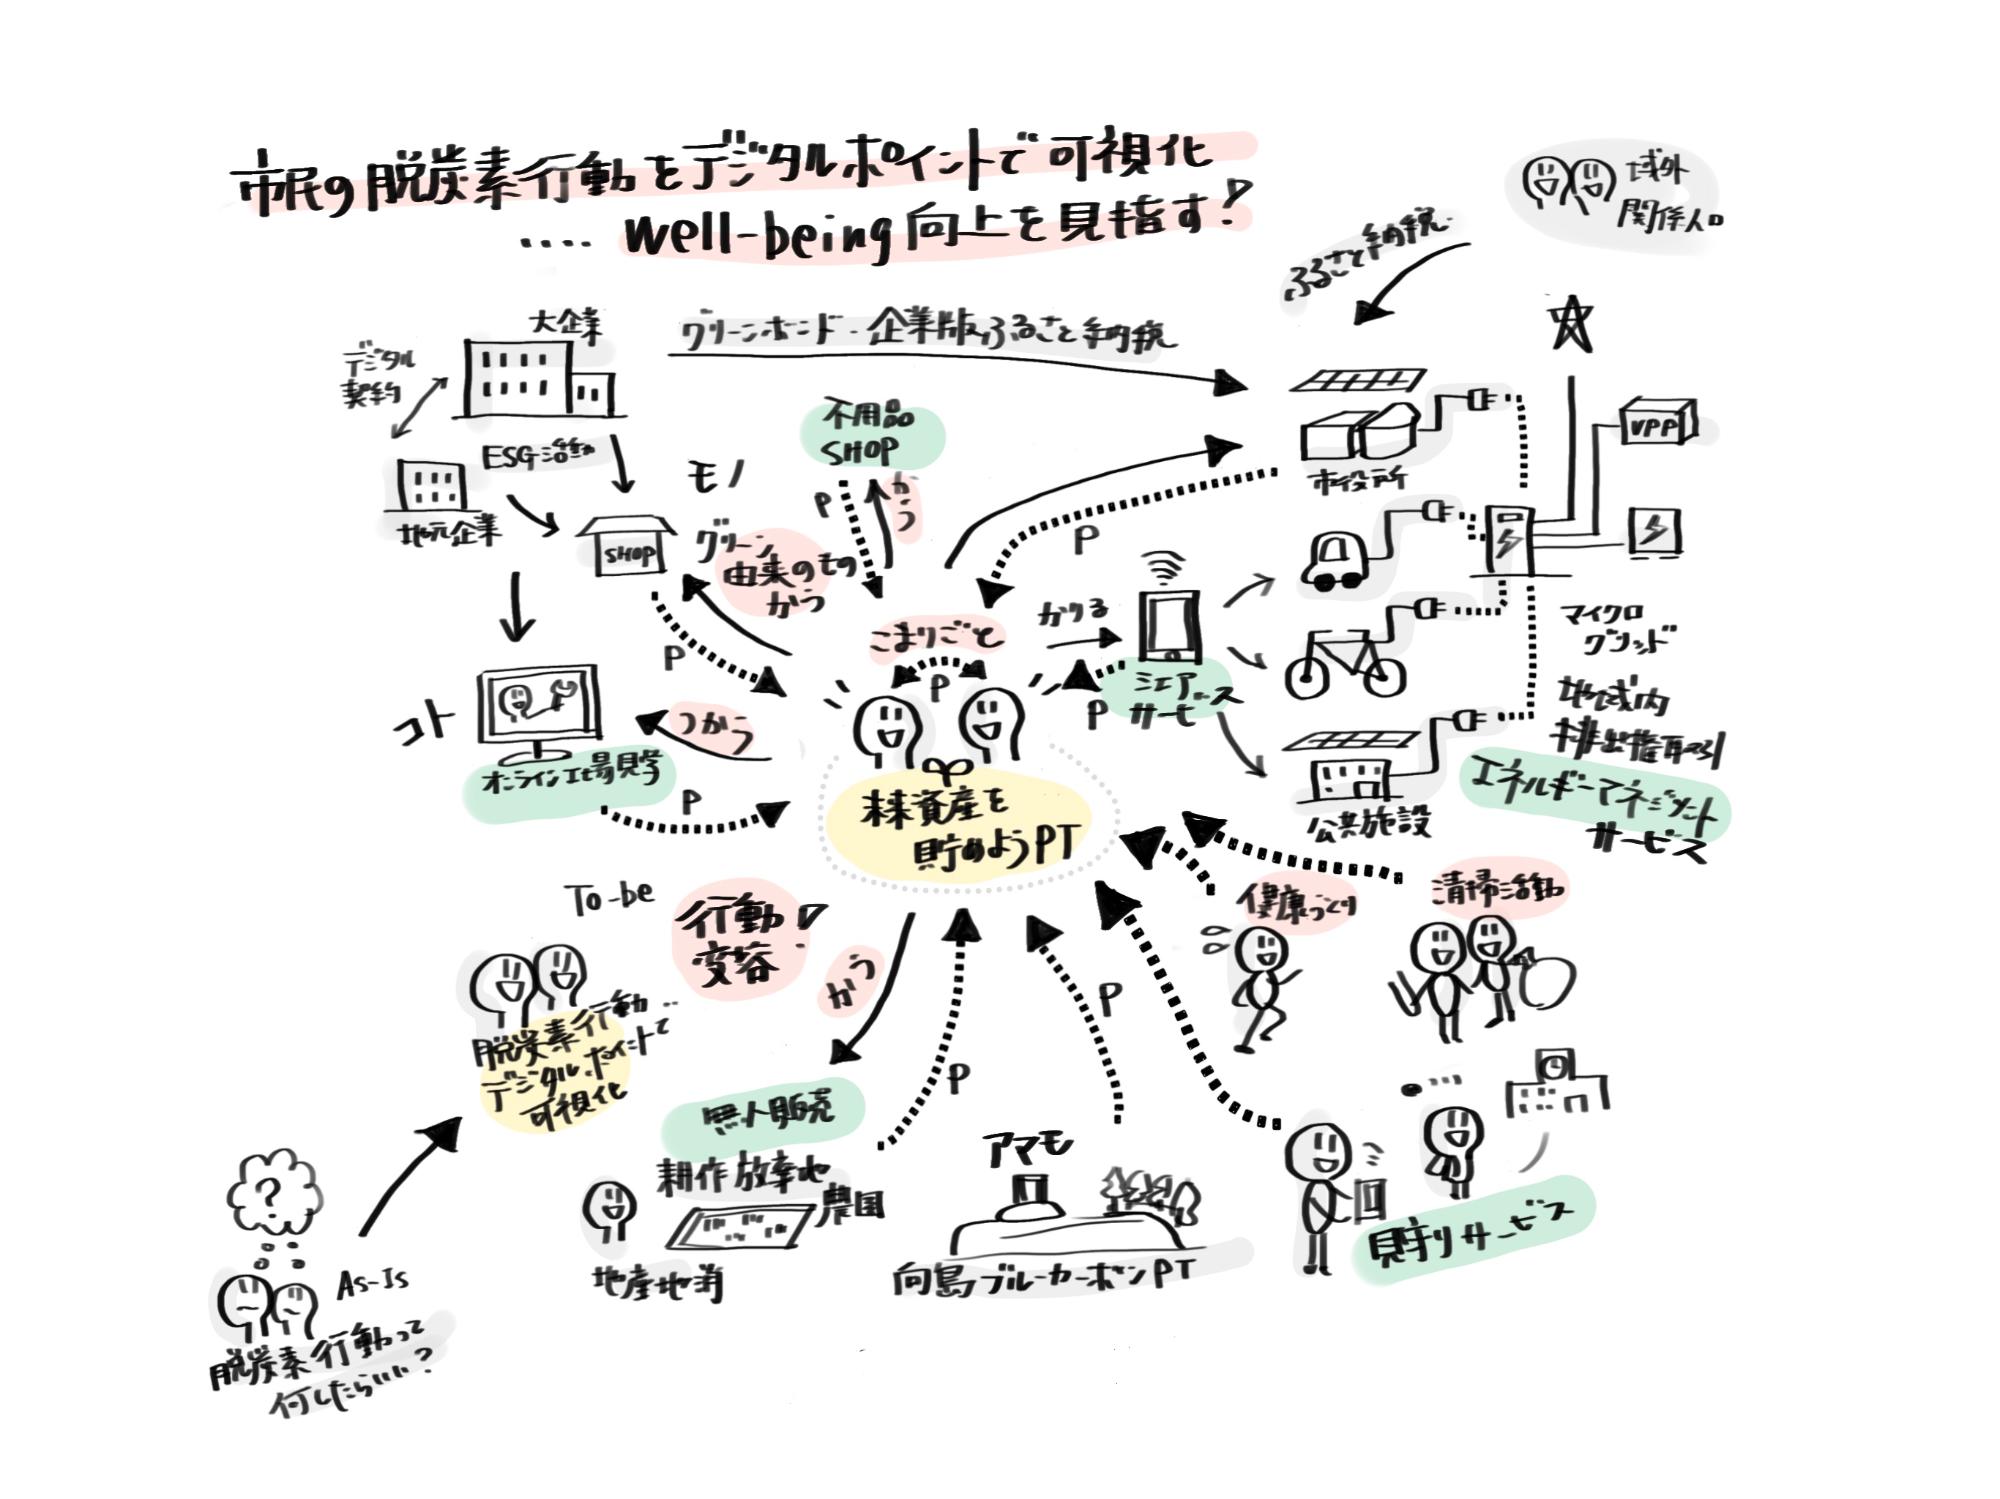 市民の脱炭素行動をデジタルポイントで可視化
‥‥ well-being向上を見指す?
域外
関係人口
ふるさと納税
大企業
グリーンボンド・企業版ふるさと納税
デジタル
契約
ESG活動
地元企業
モノ
SHOP
グリーン
由来のもの
かう
不用品
SHOP
P
かう
市役所
P
VPP
こまりごと
P
かりる
シェア
サービス
P
マイクロ
グリッド
地域内
排出権取引
エネルギーマネジメント
サービス
公共施設
P
コト
つかう
オンライン工場見学
P
資産を
貯めようPT
To-be
行動
変容
かう
脱炭素行動
デジタルポイントで
可視化
健康づくり
清掃活動
P
P
無人販売
耕作放棄地
農園
地産地消
アマモ
向島ブルーカーボンPT
見守りサービス
?
As-Is
脱炭素行動って
何したらいい?